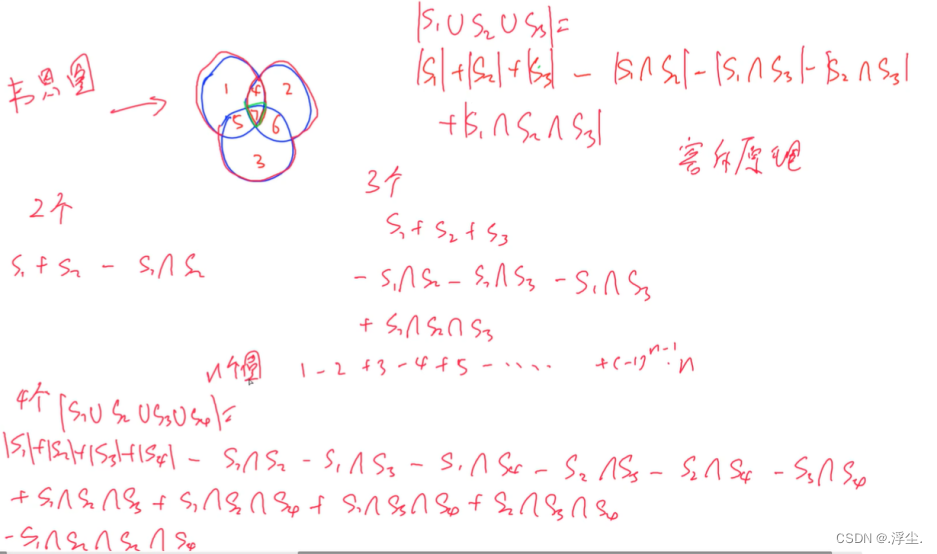 |S₁∪S₂∪S₃|=
|S₁|+|S₂|+|S₃| - |S₁∩S₂|-|S₁∩S₃|-|S₂∩S₃|
+|S₁∩S₂∩S₃|
韦恩图 →
1 4 2
5 7 6
3
容斥原理
2个
S₁+S₂ - S₁∩S₂
3个
S₁+S₂+S₃
-S₁∩S₂-S₂∩S₃-S₁∩S₃
+S₁∩S₂∩S₃
n个圆 1-2+3-4+5-..... +(-1)ⁿ⁻¹·n
4个 |S₁∪S₂∪S₃∪S₄|=
|S₁|+|S₂|+|S₃|+|S₄| - S₁∩S₂ - S₁∩S₃ - S₁∩S₄ - S₂∩S₃ - S₂∩S₄ - S₃∩S₄
+S₁∩S₂∩S₃+S₁∩S₂∩S₄+S₁∩S₃∩S₄+S₂∩S₃∩S₄
-S₁∩S₂∩S₂∩S₄
CSDN @.浮尘.